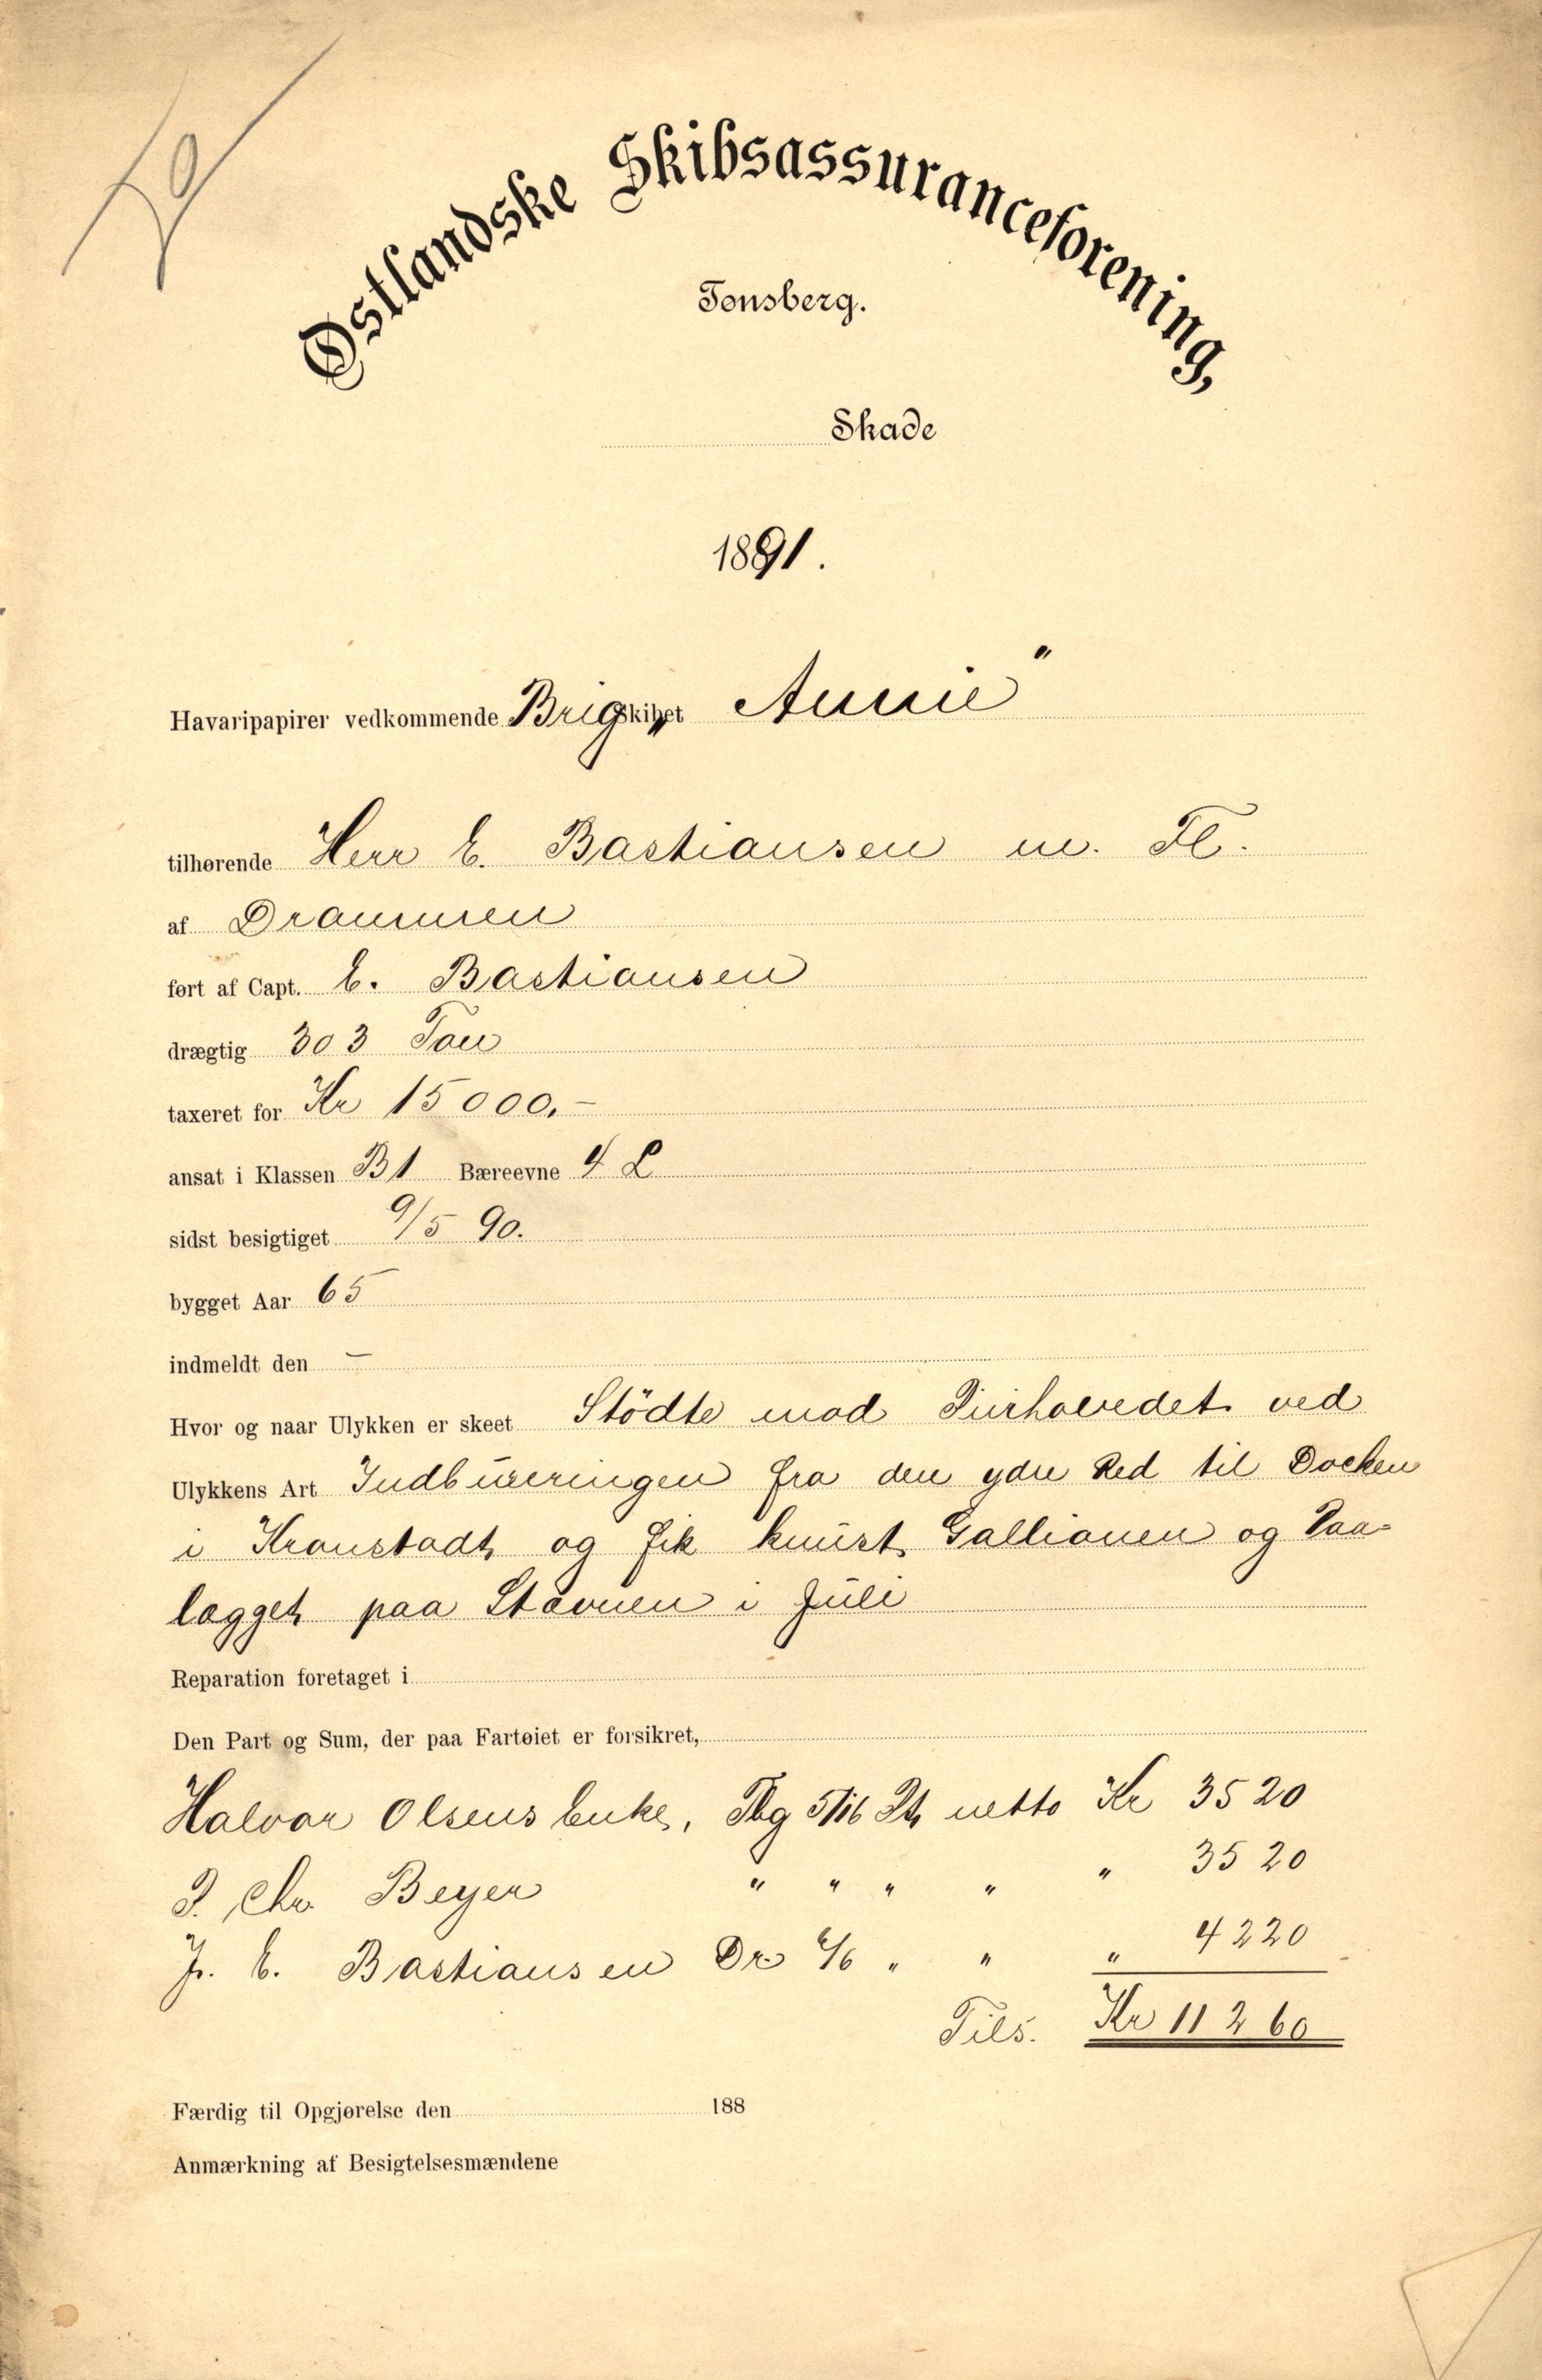 Østlandske Skibsassuranceforening,
Tønsberg.
Skade
1891.
Havaripapirer vedkommende Brigskibet „Annie"
tilhørende Herr E. Bastiansen m. Fl.
af Drammen
ført af Capt. E. Bastiansen
drægtig 303 Ton
taxeret for Kr 15000.-
ansat i Klassen B1 Bæreevne 4 L
sidst besigtiget 9/5 90.
bygget Aar 65
indmeldt den —
Hvor og naar Ulykken er skeet Stödte mod Pirhovedet ved
Ulykkens Art Indbuxeringen fra den ydre Red til Docken
i Kronstadt og fik knust Gallionen og Paa-
lægget paa Stævnen i Juli
Reparation foretaget i
Den Part og Sum, der paa Fartøiet er forsikret,
Halvor Olsens Enke, Tbg 5/16 Pt netto Kr 3520
J. Chr. Beyer " " " " " 3520
Fr. E. Bastiansen Dr 6/16 " " " 4220
Tils. Kr 11260
Færdig til Opgjørelse den 188
Anmærkning af Besigtelsesmændene